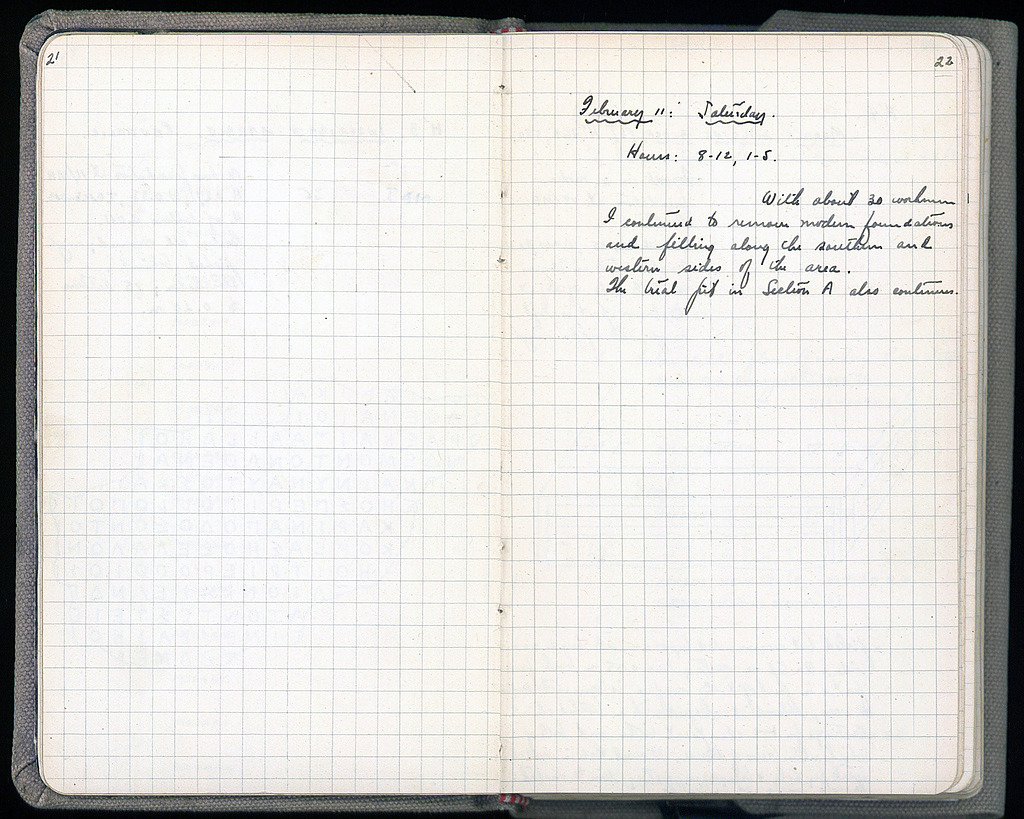 21
22
February 11: Saturday.
Hours: 8-12, 1-5.
With about 30 workmen
I continued to remove modern foundations
and filling along the southern and
western sides of the area.
The trial pit in Section A also continues.